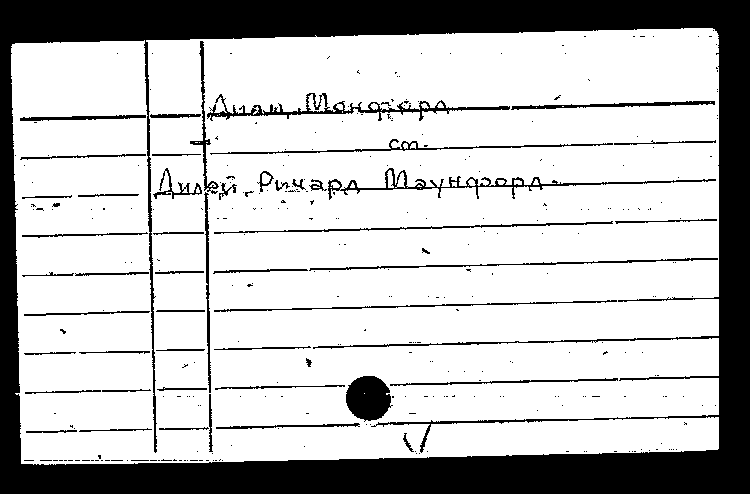 Дилли, Монфорд
см.
Дилей, Ричард Маунфорд.